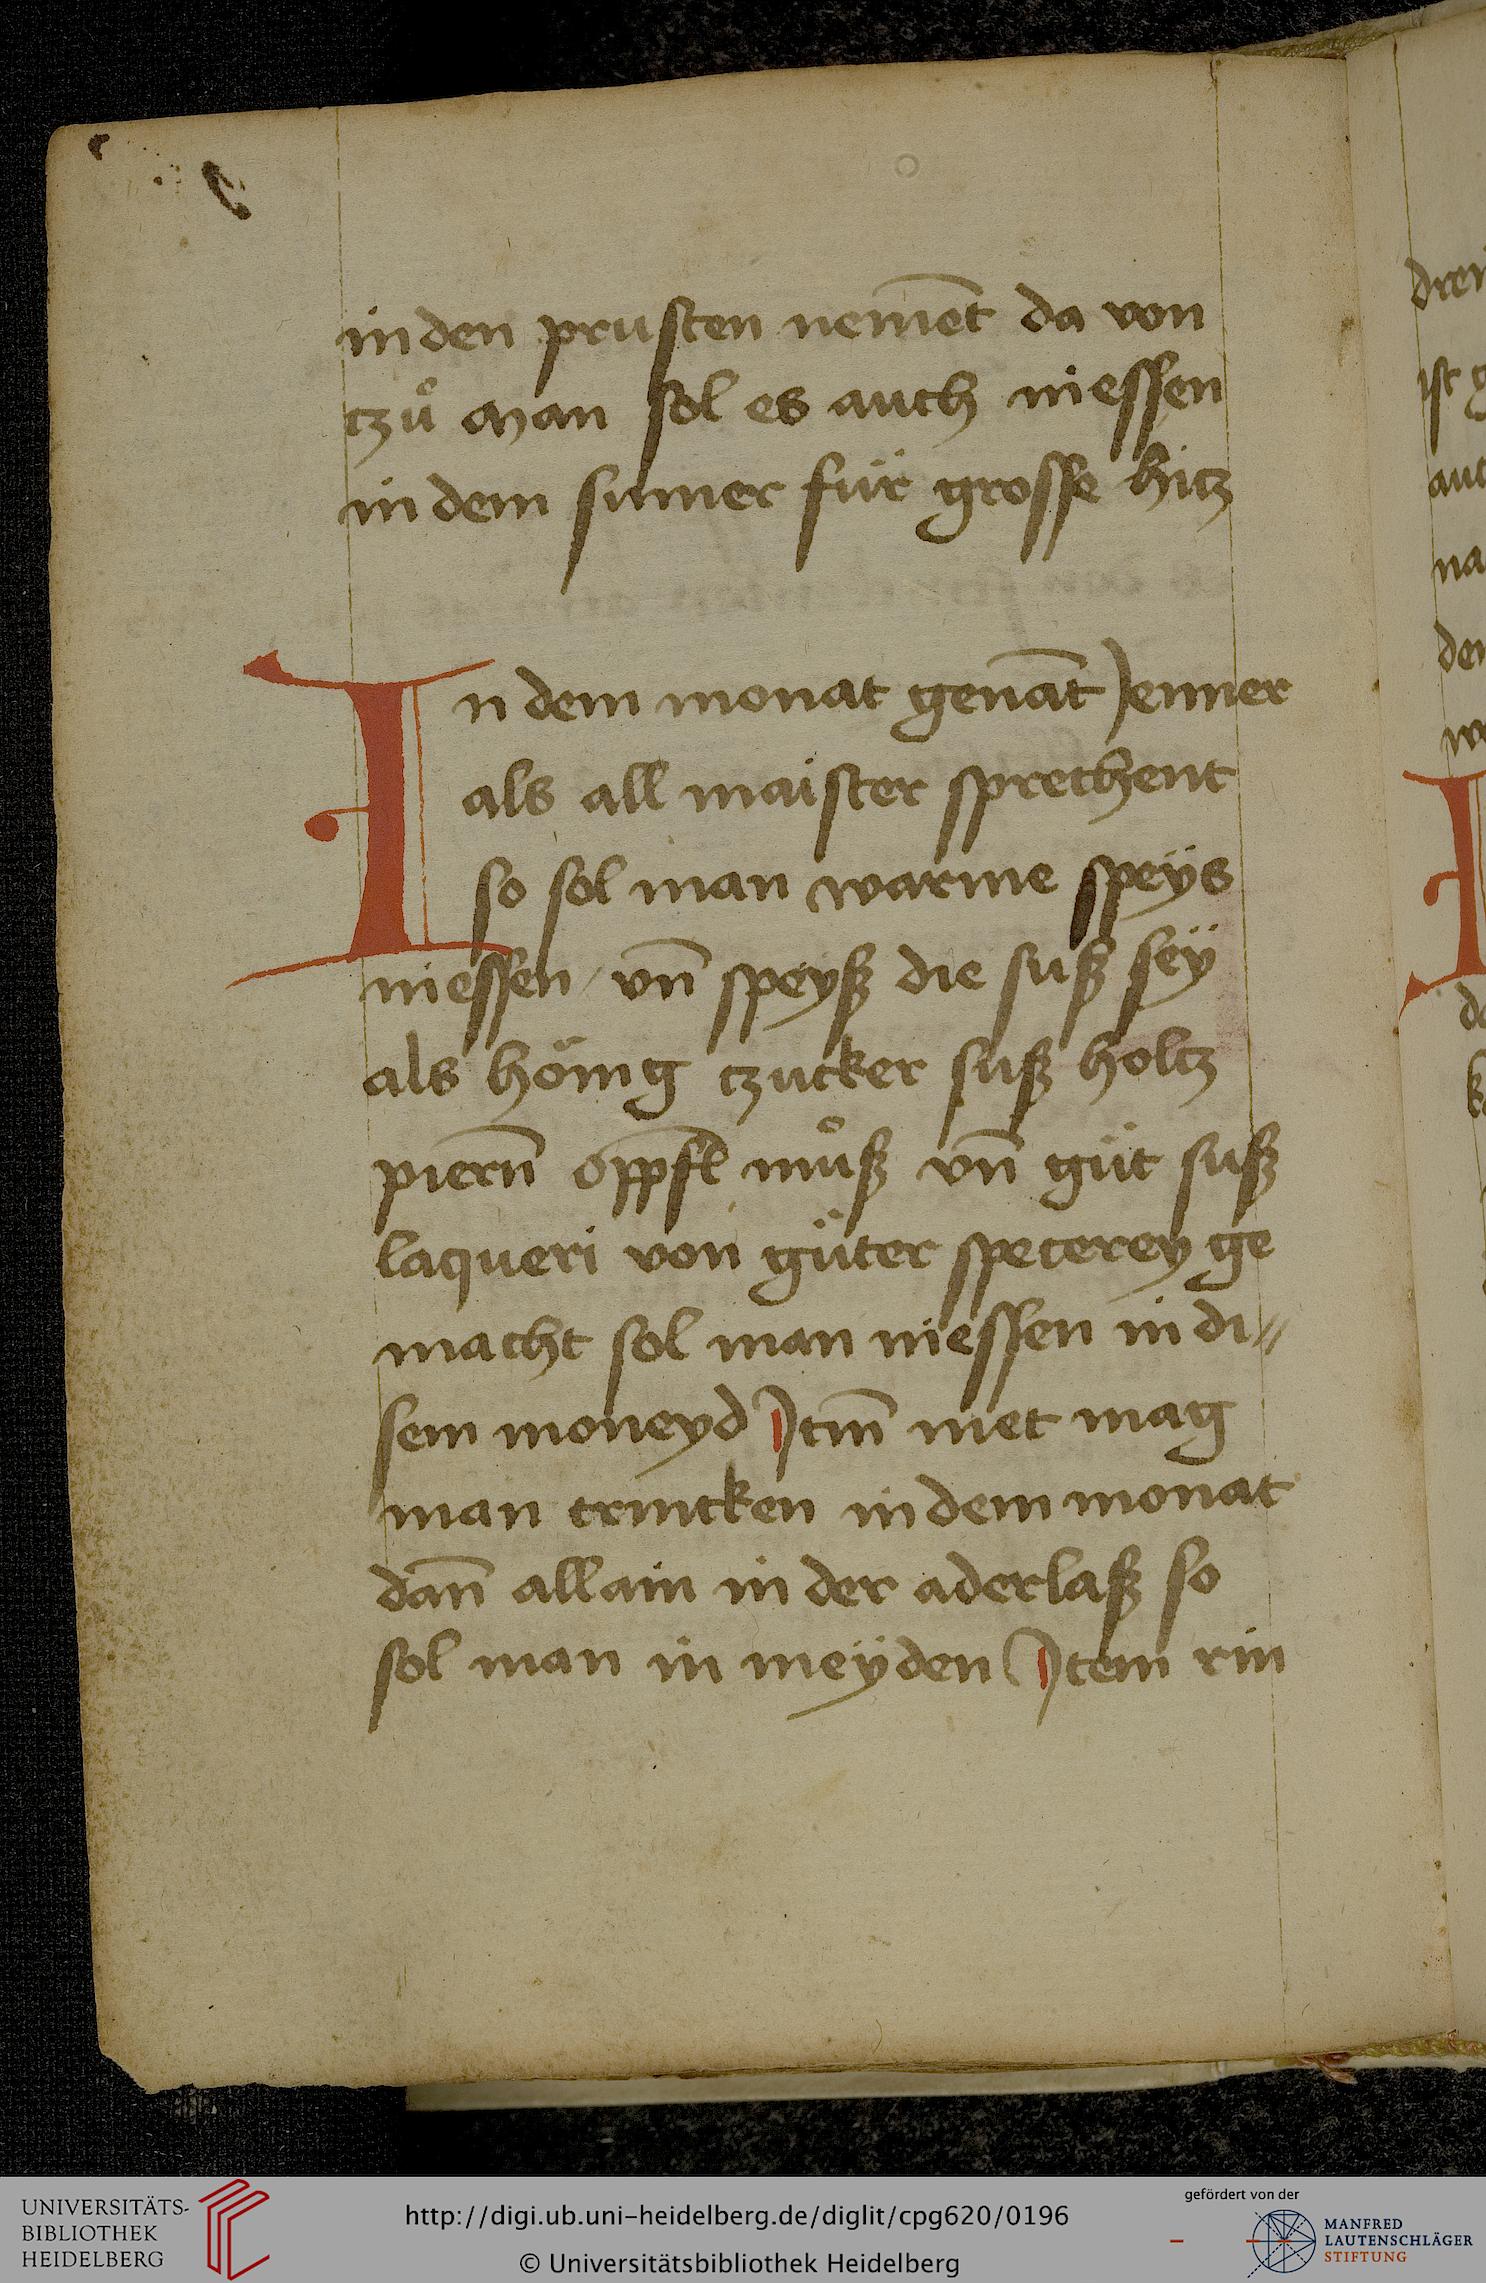 in den prusten nemēt da von
tzů man sol es auch niessen
in dem sumer für grosse hitz
In dem monat genāt Jenner
als all maister sprechent
so sol man warme speÿs
niessen / vn̄ speyß die suß seÿ
als hönig tzucker suß holtz
piern̄ öppfl můß vn̄ güt suß
laqueri von güter specerey ge
macht sol man niessen in di⸗
sem moneyd Itm̄ met mag
man trincken in dem monat
dan̄ allain in der aderlaß so
sol man in meÿden Item rin
drei
ist g
auc
na
den
we
I
da
k
UNIVERSITÄTS-
BIBLIOTHEK
HEIDELBERG
http://digi.ub.uni-heidelberg.de/diglit/cpg620/0196
© Universitätsbibliothek Heidelberg
gefördert von der
MANFRED
LAUTENSCHLÄGER
STIFTUNG